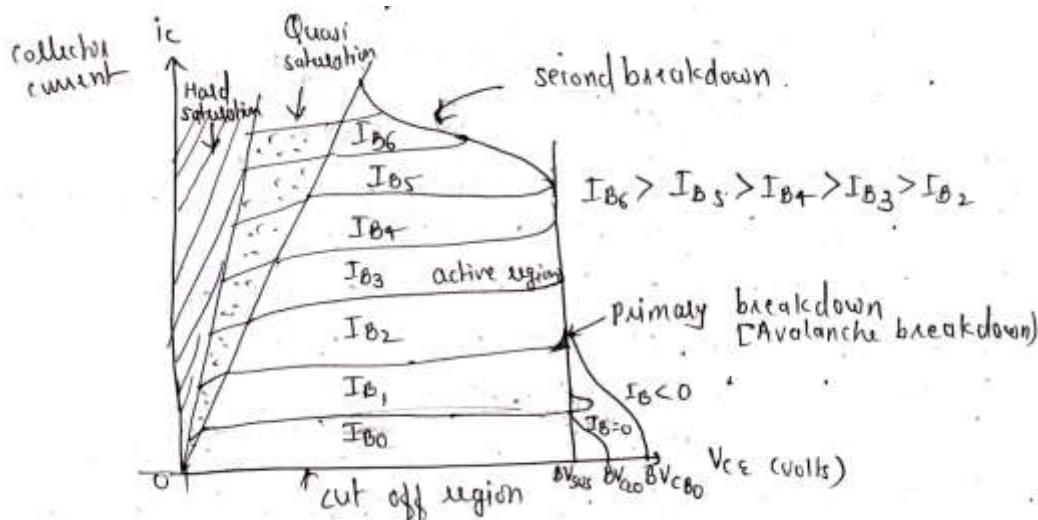 ic
collector
current
Hard
saturation
Quasi
saturation
second breakdown
IB6
IB5
IB4
IB3
active region
IB2
IB1
IB0
IB6 > IB5 > IB4 > IB3 > IB2
Primary breakdown
[Avalanche breakdown)
IB<0
IB=0
0
cut off region
BVSUS
BVCEO
BVCBO
VCE (volts)